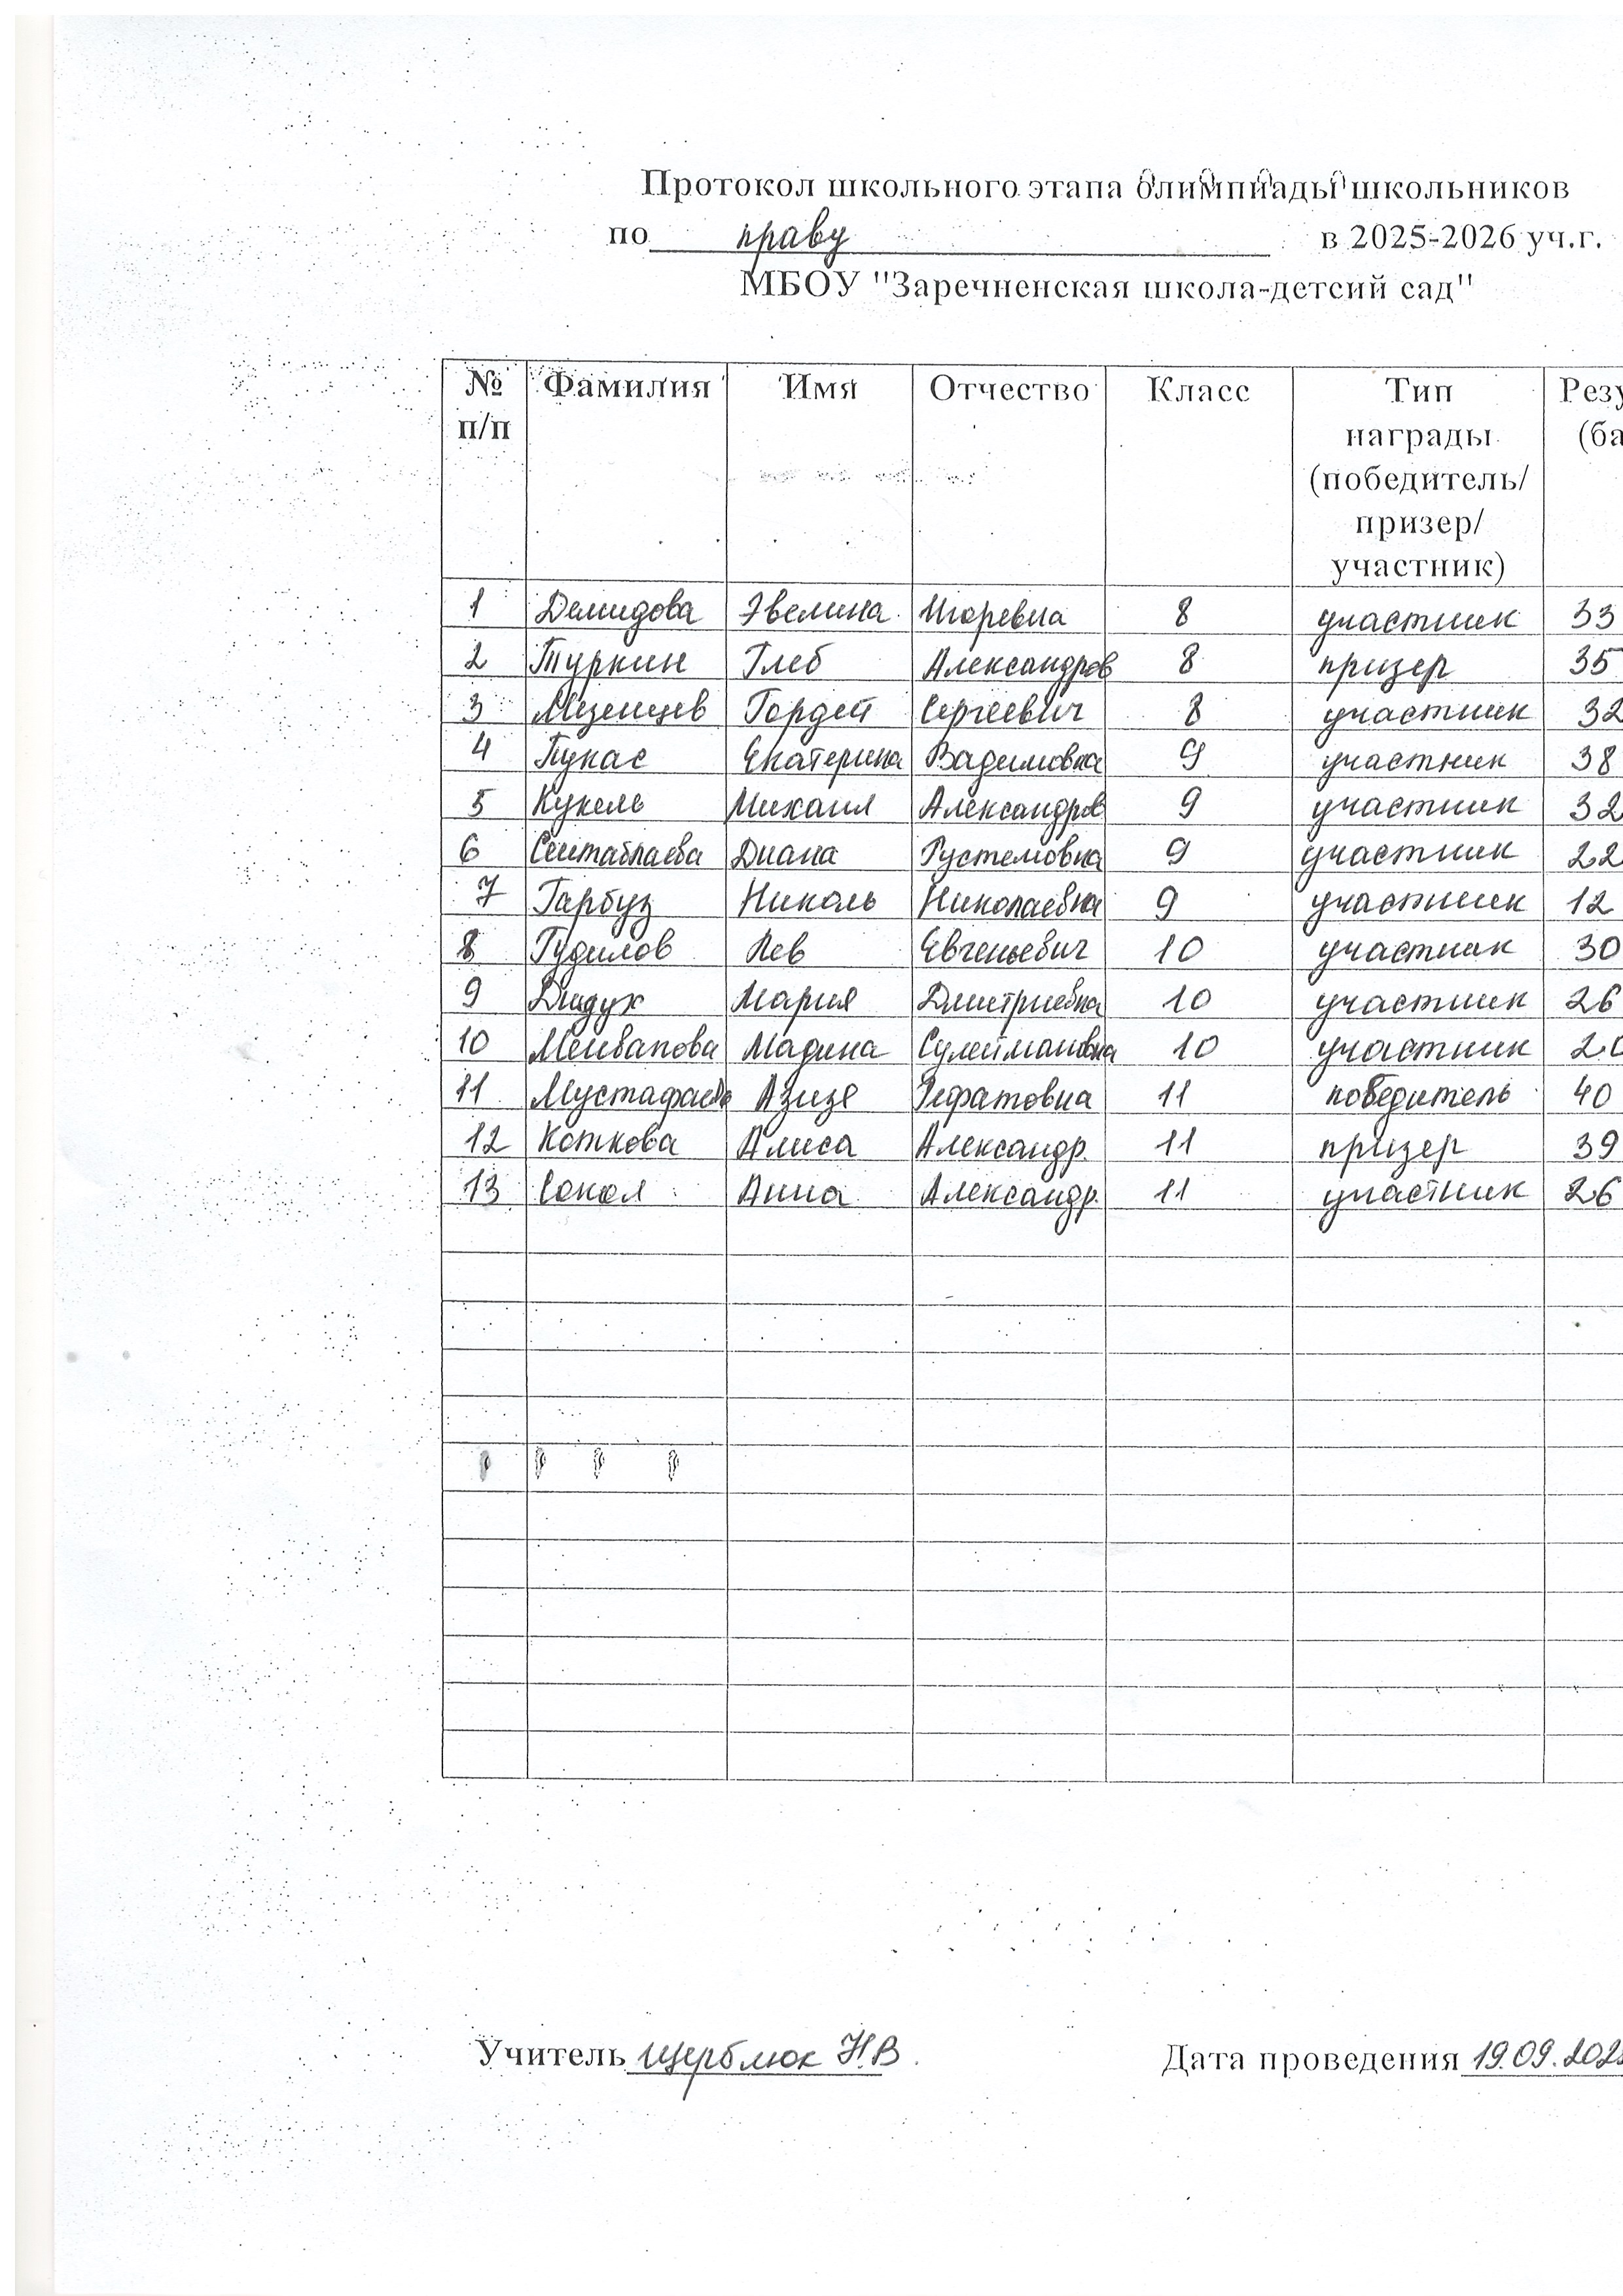 Протокол школьного этапа олимпиады школьников
по праву в 2025-2026 уч.г.
МБОУ "Заречненская школа-детсий сад"
№ п/п Фамилия Имя Отчество Класс Тип награды (победитель/ призер/ участник) Резу (ба
1 Демидова Эвелина Игоревна 8 участник 33
2 Туркин Глеб Александров 8 призер 35
3 Мезенцев Гордей Сергеевич 8 участник 32
4 Пукас Екатерина Вадимовна 9 участник 38
5 Кукель Михаил Александров 9 участник 32
6 Сеитаблаева Диана Рустемовна 9 участник 22
7 Гарбуз Николь Николаевна 9 участник 12
8 Гудилов Лев Евгеньевич 10 участник 30
9 Дидух Мария Дмитриевна 10 участник 26
10 Мадина Сулеймановна 10 участник 20
11 Мустафаева Азизе Рефатовна 11 победитель 40
12 Коткова Алиса Александр. 11 призер 39
13 Сокол Анна Александр. 11 участник 26
Учитель Щерблюк Н.В. Дата проведения 19.09.202